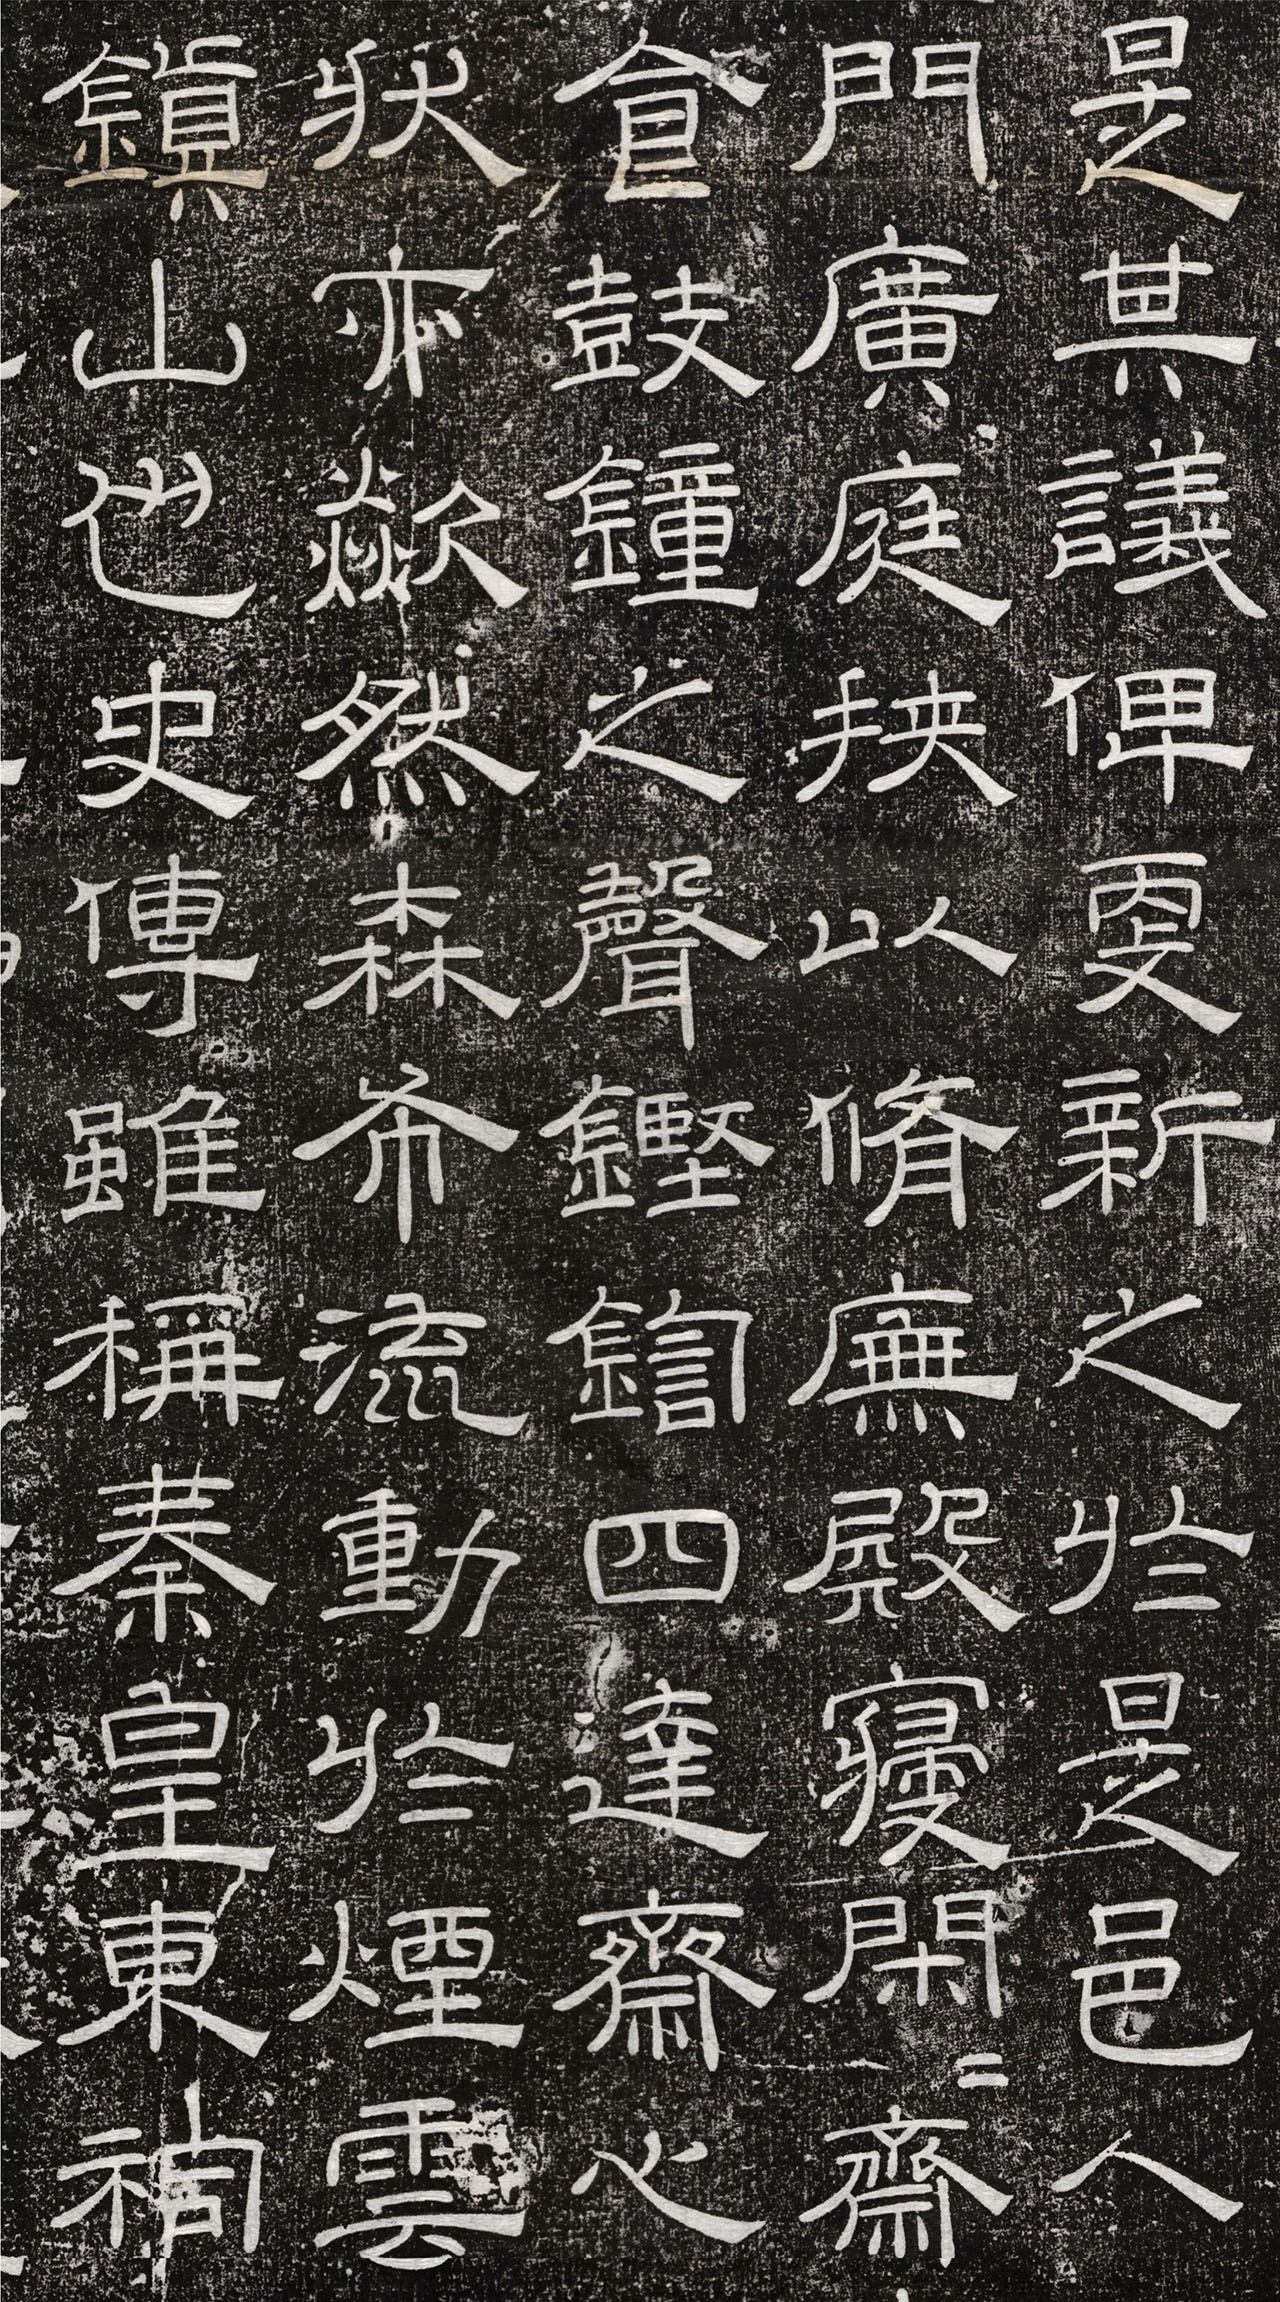 是其議俾更新之於是邑人
門廣庭挾以脩廡殿寢閑〻齋
食鼓鐘之聲鏗鍧四達齋心
狀亦歘然森希流動於煙雲
鎮山也史傳雖稱秦皇東祠